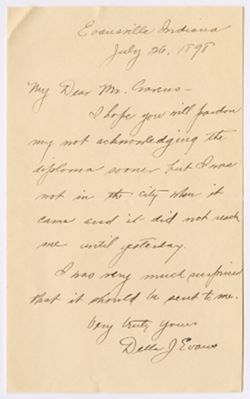 Evansville Indiana
July 26, 1898
My Dear Mr. Cravens -
I hope you will pardon
my not acknowledging the
diploma sooner but I was
not in the city when it
came and it did not reach
me until yesterday.
I was very much surprised
that it should be sent to me.
Very truly yours
Della J Evans